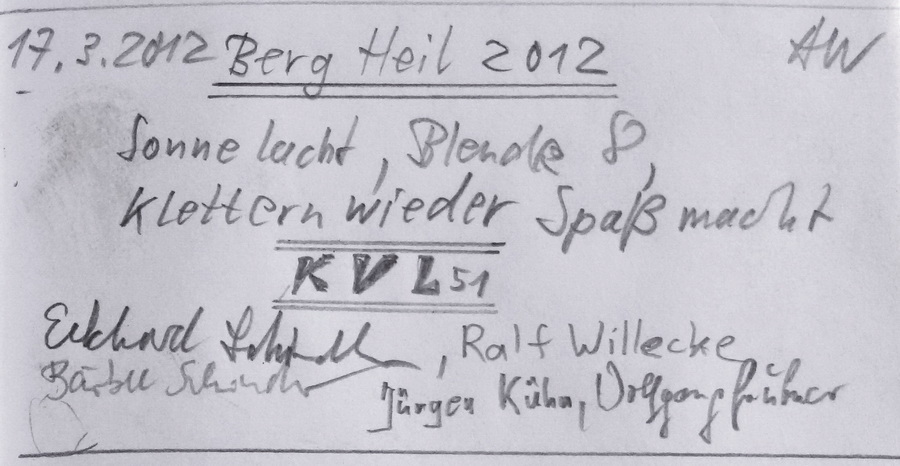 17.3.2012 Berg Heil 2012 AW
Sonne lacht, Blende 8,
Klettern wieder Spaß macht
KVL 51
Eckhard, Ralf Willecke
Bärbel
Jürgen Kühn, Wolfgang